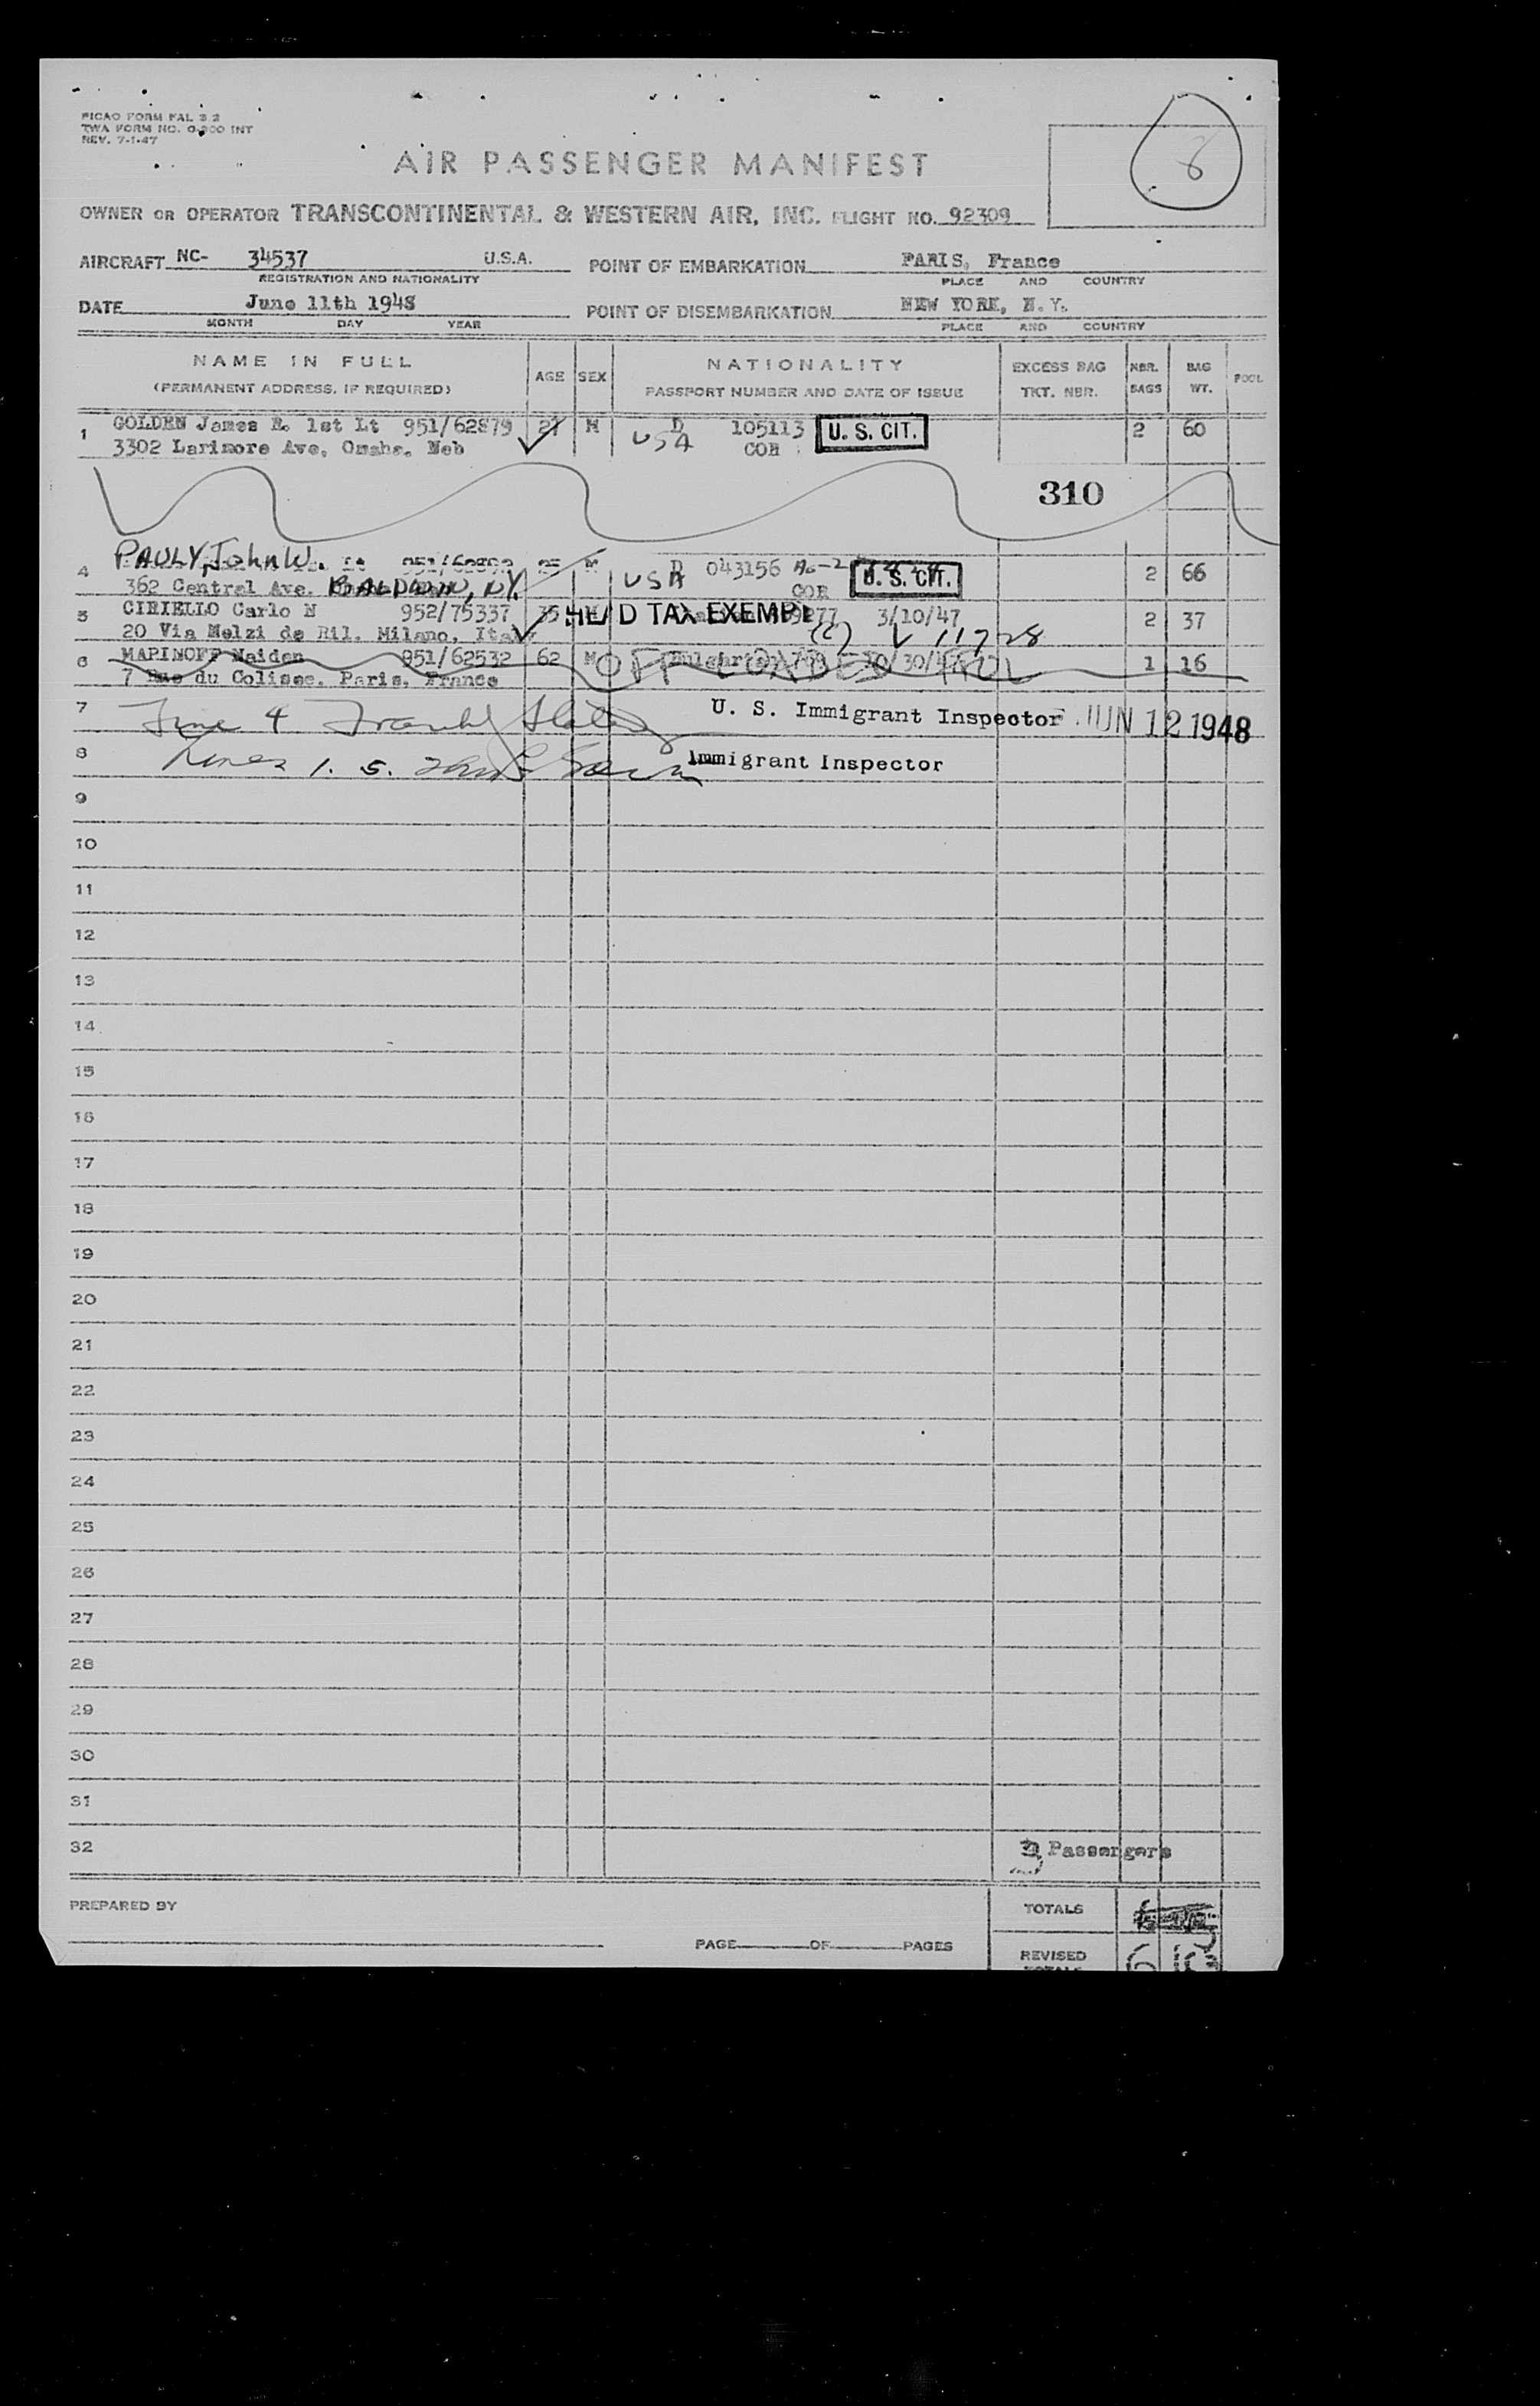 PICAO FORM FAL 3 2
TWA FORM NO. O-200 INT
REV. 7-1-47
8
AIR PASSENGER MANIFEST
OWNER OR OPERATOR TRANSCONTINENTAL & WESTERN AIR, INC. FLIGHT NO. 92309
AIRCRAFT NC- 34537 U.S.A. POINT OF EMBARKATION PARIS, France
REGISTRATION AND NATIONALITY PLACE AND COUNTRY
DATE June 11th 1948 POINT OF DISEMBARKATION NEW YORK, N.Y.
MONTH DAY YEAR PLACE AND COUNTRY
NAME IN FULL AGE SEX NATIONALITY EXCESS BAG NBR. BAG POOL
(PERMANENT ADDRESS, IF REQUIRED) PASSPORT NUMBER AND DATE OF ISSUE TKT. NBR. BAGS WT.
1 GOLDEN James R. 1st Lt 951/62879 27 M USA D 105113 U. S. CIT. 2 60
3302 Larimore Ave, Omaha, Neb COH
310
4 PAULY, John W. Lt 25 M USA D 043156 U. S. CIT. 2 66
362 Central Ave. BALDWIN, NY.
5 CIRIELLO Carlo N 952/75337 35 HEAD TAX EXEMPT 3/10/47 2 37
20 Via Melzi de Ril. Milano, Italy
6 MARINOFF Naiden 951/62532 62 M OFF LOADED 1 16
7 Rue du Colisee, Paris, France
7 Line 4 U. S. Immigrant Inspector JUN 12 1948
8 Lines 1. 5. Immigrant Inspector
9
10
11
12
13
14
15
16
17
18
19
20
21
22
23
24
25
26
27
28
29
30
31
32 Passengers
PREPARED BY TOTALS
PAGE OF PAGES REVISED